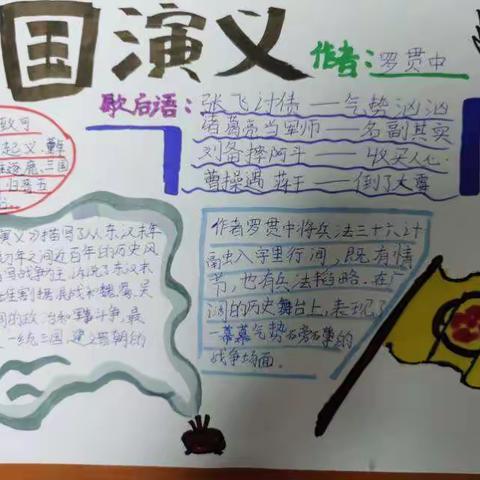 国演义
作者:罗贯中
歇后语:张飞讨债——气势汹汹
诸葛亮当军师——名副其实
刘备摔阿斗——收买人心
曹操遇蒋干——倒了大霉
起义、
三国
归
演义》描写了从东汉末年
初年之间近百年的历史风
写战争为主,诉说了东汉末
雄割据混战和魏、蜀、吴
间的政治和军事斗争,最
一统三国,建立晋朝的
作者罗贯中将兵法三十六计
融入字里行间,既有情
节,也有兵法韬略。在广
阔的历史舞台上,表现了
一幕幕气势磅礴的
战争场面.